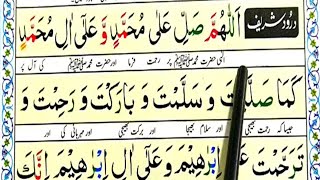 درود شریف
اَللّٰهُمَّ صَلِّ عَلٰى مُحَمَّدٍ وَّ عَلٰٓى اٰلِ مُحَمَّدٍ
الٰہی حضرت محمد ﷺ پر رحمت فرما اور حضرت محمد ﷺ کی آل پر
كَمَا صَلَّيْتَ وَ سَلَّمْتَ وَ بَارَكْتَ وَ رَحِمْتَ وَ
جیسا کہ رحمت بھیجی اور سلام بھیجا اور برکت بھیجی اور مہربانی کی اور
تَرَحَّمْتَ عَلٰٓى اِبْرٰهِيْمَ وَ عَلٰٓى اٰلِ اِبْرٰهِيْمَ اِنَّكَ